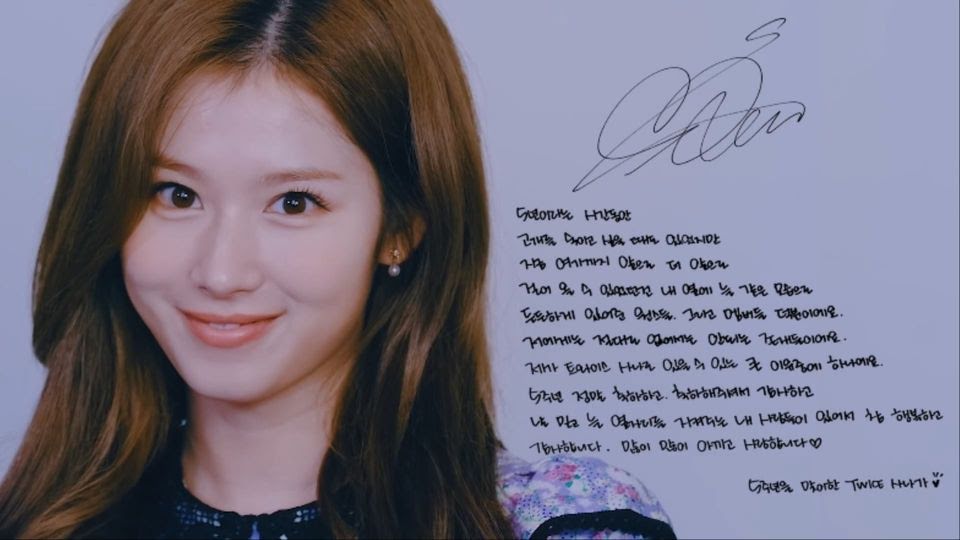 5년이라는 시간동안
고개를 숙이고 싶을 때도 있었지만
지금 여기까지 앞으로 더 앞으로
걸어 올 수 있었던건 내 옆에 늘 같은 모습으로
든든하게 있어준 원스들, 그리고 멤버들 덕분이에요.
저에게는 절대로 없어서는 안되는 존재들이에요.
제가 트와이스 사나로 있을 수 있는 큰 이유중에 하나예요.
5주년 정말 축하하고, 축하해주셔서 감사하고
날 믿고 늘 옆자리를 지켜주는 내 사람들이 있어서 참 행복하고
감사합니다. 많이 많이 아끼고 사랑합니다♡
5주년을 맞이한 TWICE 사나가